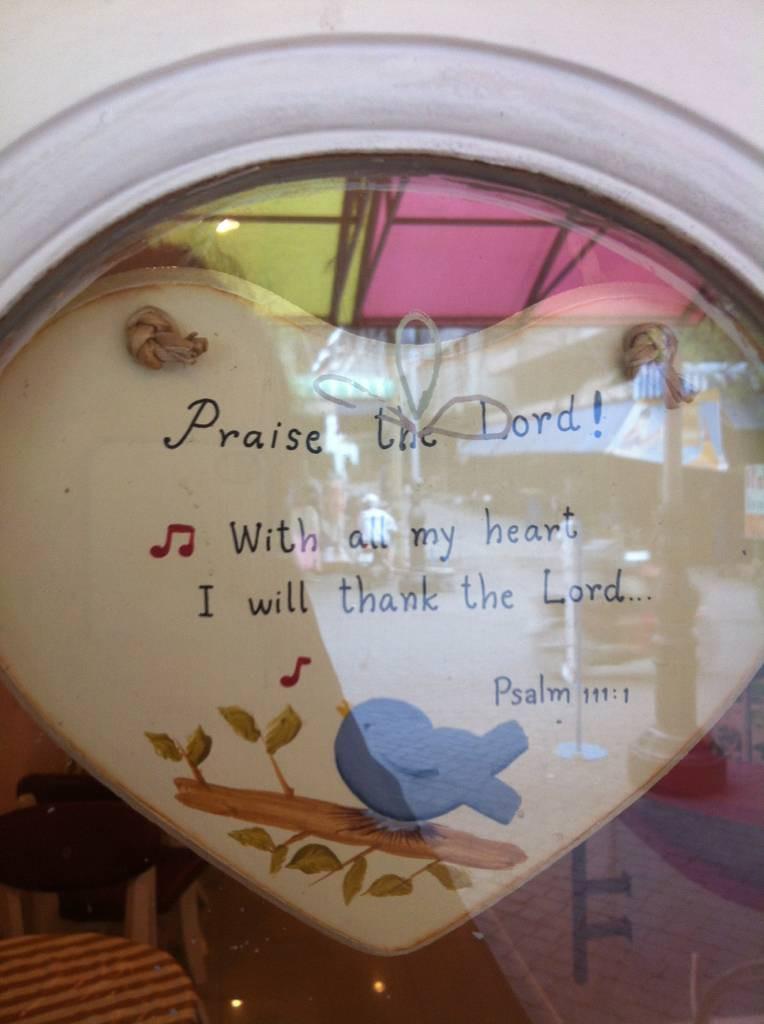 Praise the Lord!
With all my heart
I will thank the Lord...
Psalm 111:1